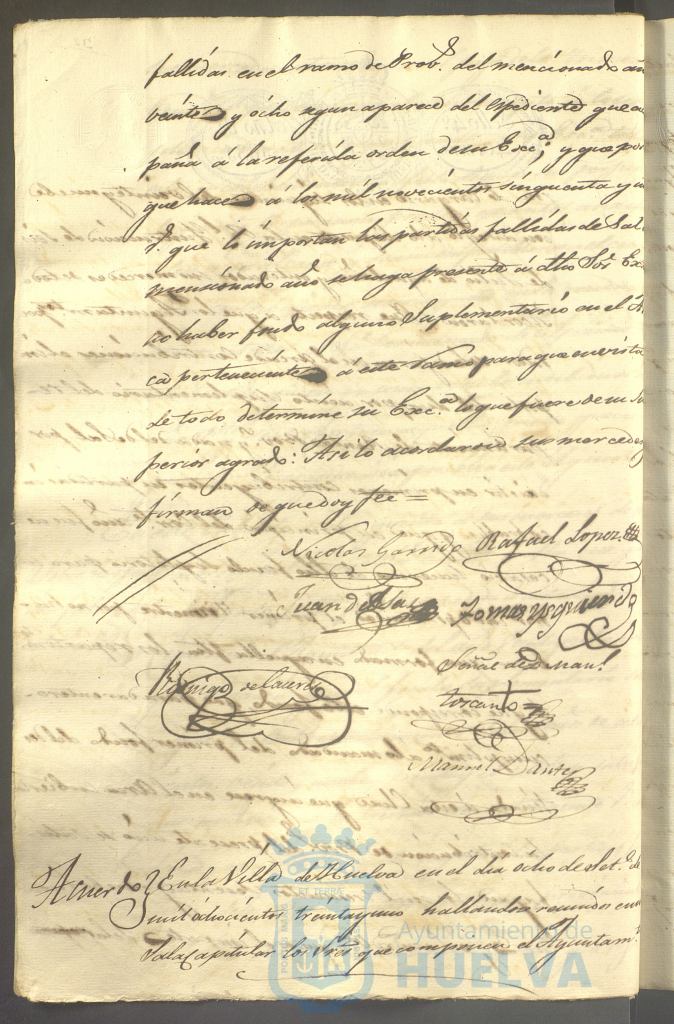 fallidas en el ramo de Prob.s del mencionado añ
veinte y ocho segun aparece del espediente que a
paña á la referida orden de su Exc.a; y que por
que hace á los mil novecientos sinquenta y u
r.s que lo importan las partidas fallidas de Sal
mensionado año se haga presente á dho Sor. Ex
no haber fondo alguno Suplementario en el A
ca perteneciente á este ramo para que en vista
de todo determine su Exc.a lo que fuere de su Su
perior agrado. Asi lo acordaron sus mercedes
firman de que doy fee =
Nicolas Garrido Rafael Lopez
Juan de Tomas Yzquierdo
Rodrigo de la Cuerda Señal de D. Man.l
toscano
Manuel Dante
Acuerdo En la Villa de Huelva en el dia ocho de Set.e de
mil ochocientos treinta y uno hallandose reunidos en
Sala Capitular los Sres que componen el Ayuntam.
Ayuntamiento de
HUELVA